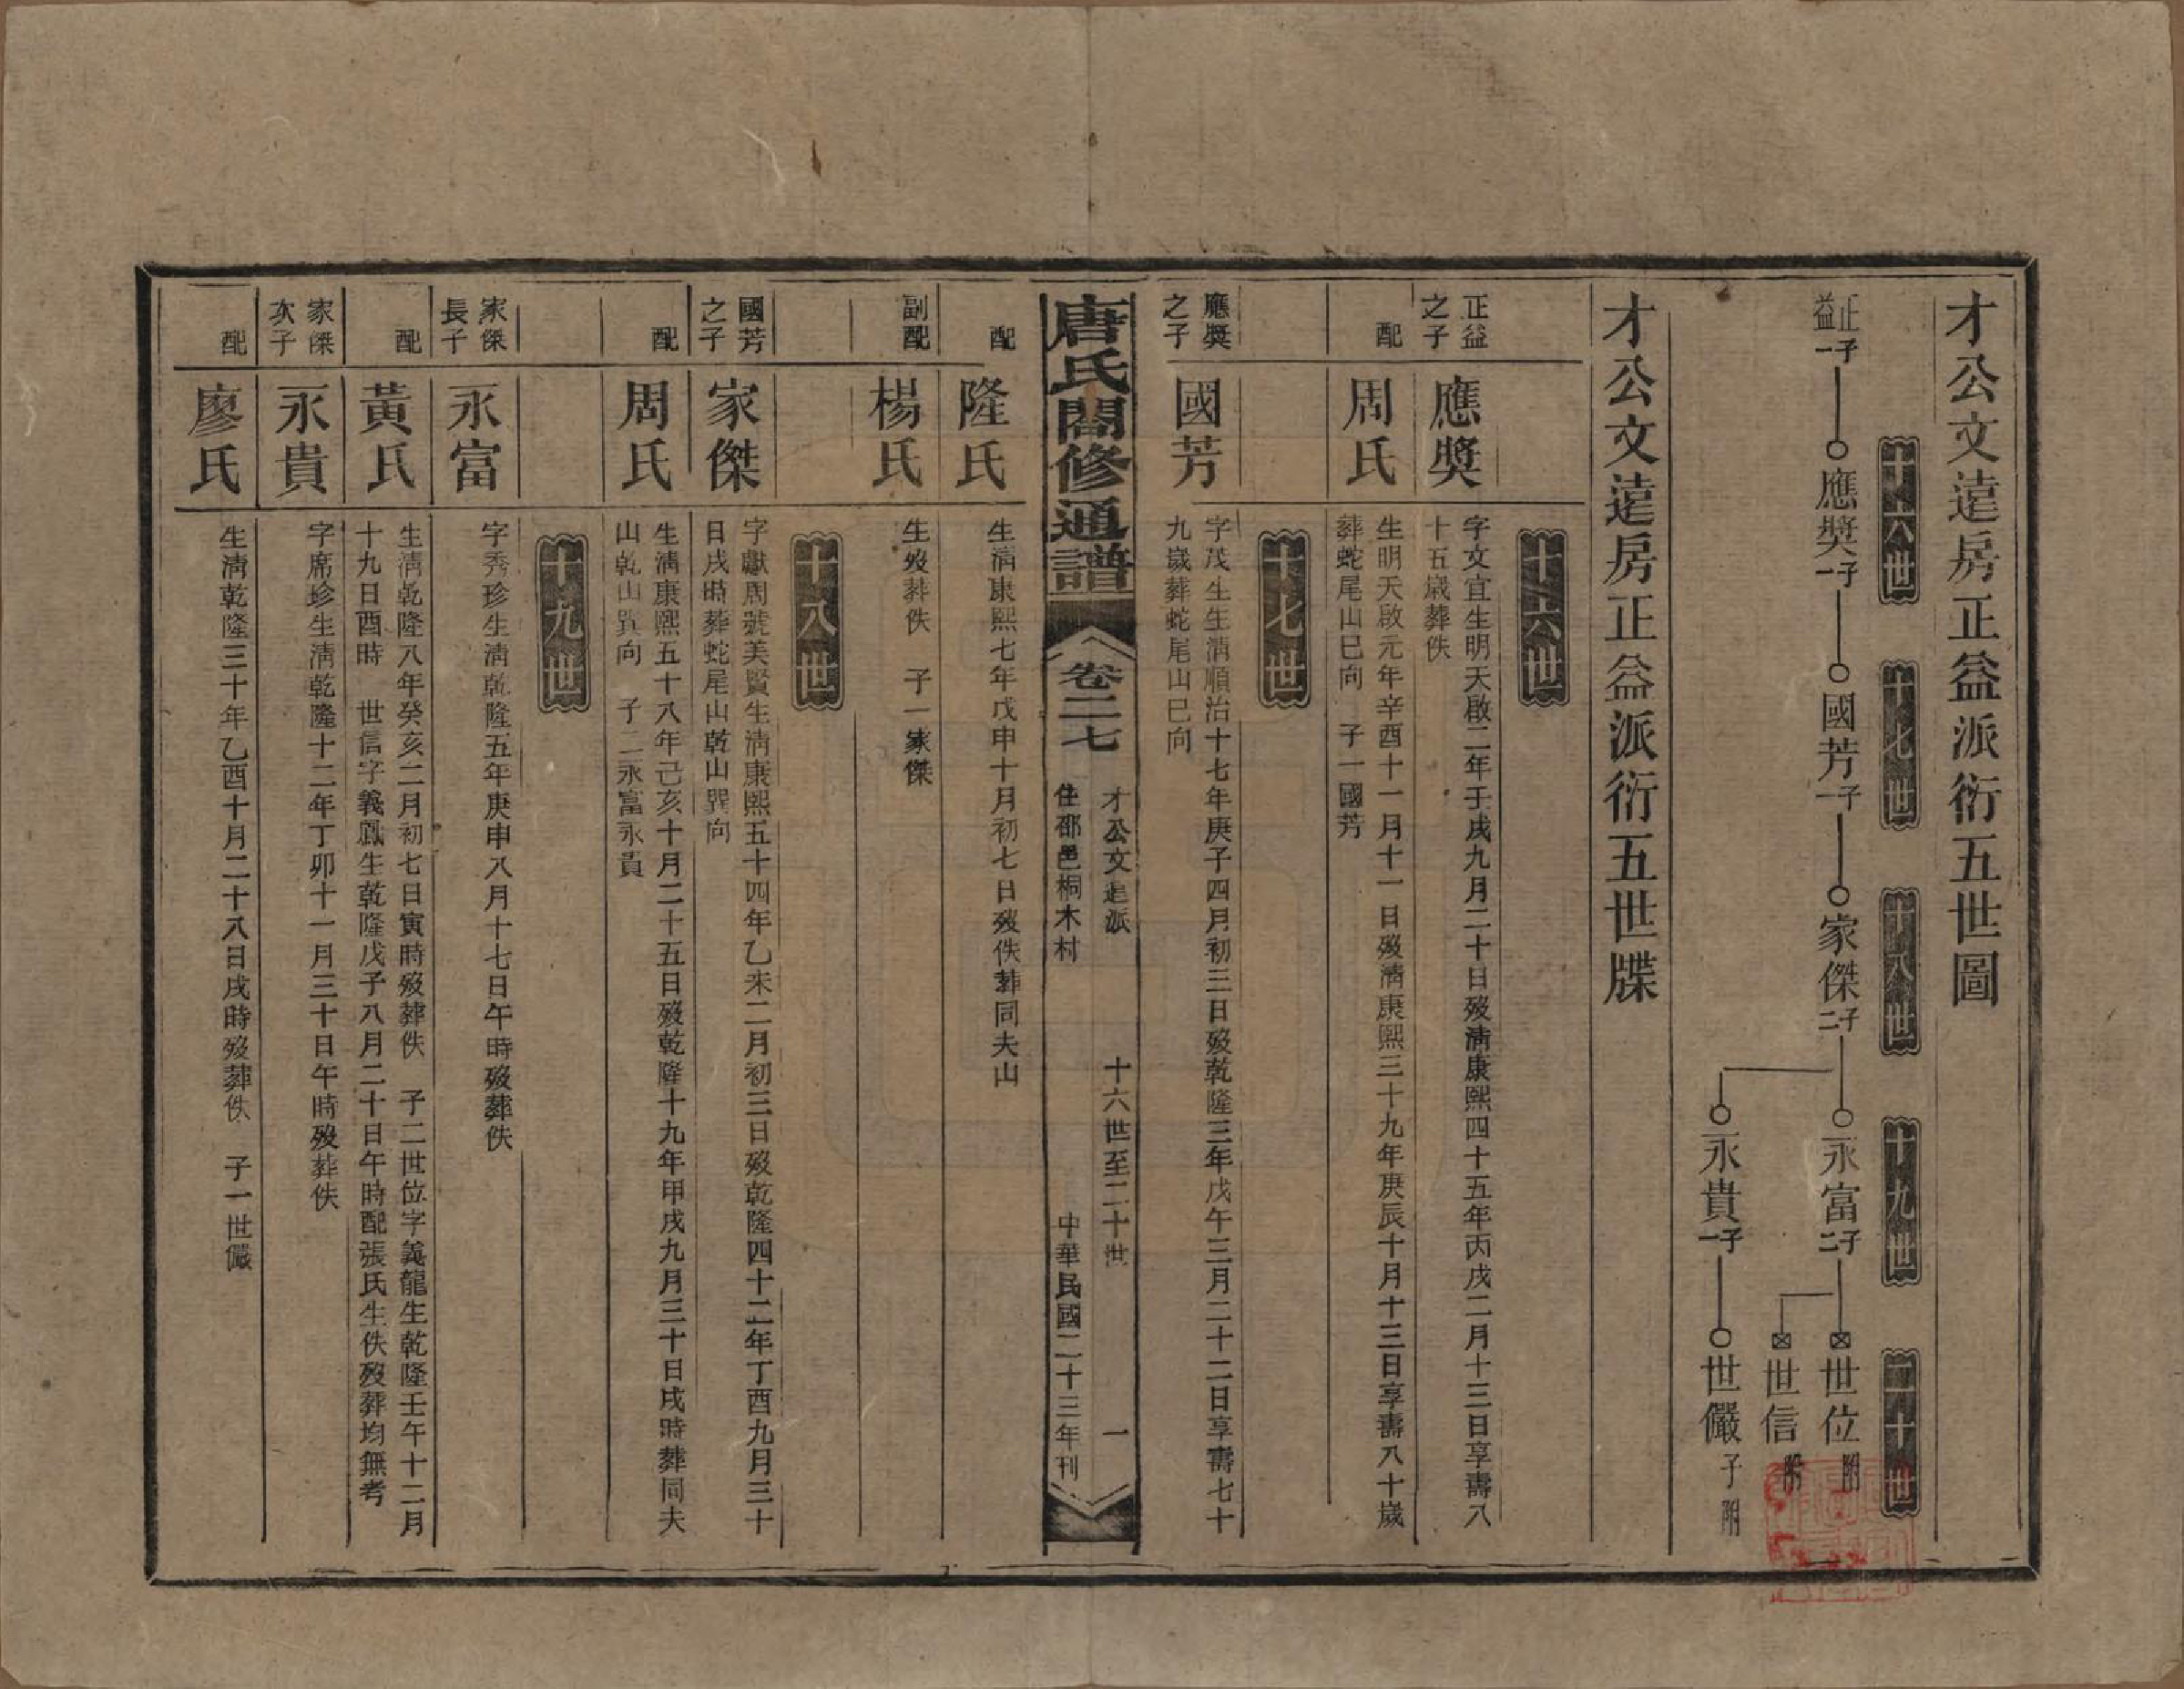 才公文遠房正益派衍五世圖
十六世
十七世
十八世
十九世
二十世
正益一子
應獎一子
國芳一子
家傑二子
永富二子
世位附
世信附
永貴一子
世儼子附
才公文遠房正益派衍五世牒
十六世
正益之子
應獎
字文宜生明天啟二年壬戌九月二十日歿淸康熙四十五年丙戌二月十三日享壽八
十五歲葬佚
配
周氏
生明天啟元年辛酉十一月十一日歿淸康熙三十九年庚辰十月十三日享壽八十歲
葬蛇尾山巳向　子一國芳
十七世
應獎之子
國芳
字茂生生淸順治十七年庚子四月初三日歿乾隆三年戊午三月二十二日享壽七十
九歲葬蛇尾山巳向
唐氏闔修通譜
卷二七
才公文遠派
住邵邑桐木村
十六世至二十世
一
中華民國二十三年刊
配
隆氏
生淸康熙七年戊申十月初七日歿佚葬同夫山
副配
楊氏
生歿葬佚　子一家傑
十八世
國芳之子
家傑
字獻周號美賢生淸康熙五十四年乙未二月初三日歿乾隆四十二年丁酉九月三十
日戌時葬蛇尾山乾山巽向
配
周氏
生淸康熙五十八年己亥十月二十五日歿乾隆十九年甲戌九月三十日戌時葬同夫
山乾山巽向　子二永富永貴
十九世
家傑長子
永富
字秀珍生淸乾隆五年庚申八月十七日午時歿葬佚
配
黃氏
生淸乾隆八年癸亥二月初七日寅時歿葬佚　子二世位字義龍生乾隆壬午十二月
十九日酉時　世信字義鳳生乾隆戊子八月二十日午時配張氏生佚歿葬均無考
家傑次子
永貴
字席珍生淸乾隆十二年丁卯十一月三十日午時歿葬佚
配
廖氏
生淸乾隆三十年乙酉十月二十八日戌時歿葬佚　子一世儼